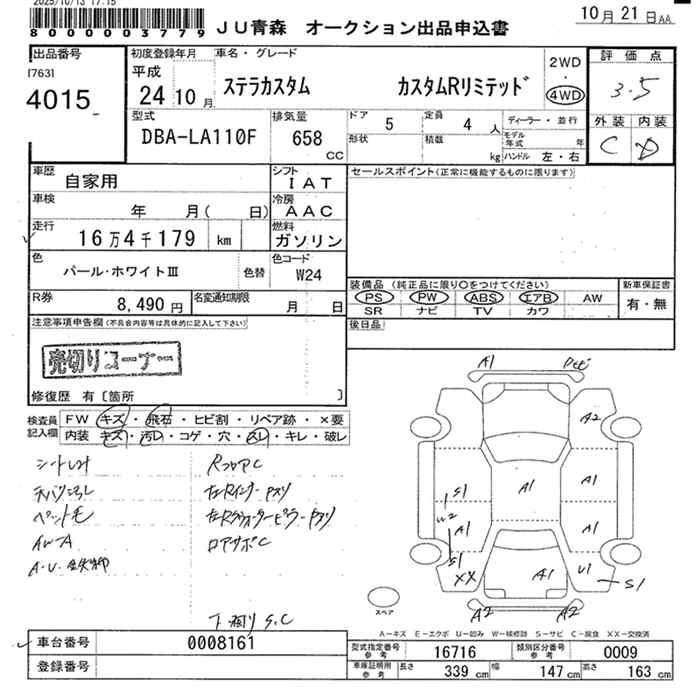 2025/10/13 17:15
8000000003779
JU青森 オークション出品申込書
10月21日AA
出品番号
17631
4015
初度登録年月
平成
24 10月
車名・グレード
ステラカスタム カスタムRリミテッド
2WD
・
4WD
評価点
3.5
外装 内装
C D
型式
DBA-LA110F
排気量
658
CC
ドア 5
定員 4 人
形状
積載 kg
ディーラー・並行
モデル年式 年
ハンドル 左・右
車歴
自家用
シフト
IAT
車検
年 月( 日)
冷房
AAC
走行
16万4千179 km
燃料
ガソリン
色
パール・ホワイトⅢ
色替
色コード
W24
R券
8,490円
名変通知期限
月 日
セールスポイント(正常に機能するものに限ります)
装備品(純正品に限り○をつけてください)
PS PW ABS エアB AW
SR ナビ TV カワ
新車保証書
有・無
後日品
注意事項申告欄(不具合内容等は具体的に記入して下さい)
売切りコーナー
修復歴 有〔箇所 〕
検査員記入欄
FW キズ・飛石・ヒビ割・リペア跡・×要
内装 キズ・汚レ・コゲ・穴・スレ・キレ・破レ
ペット毛
RフロアC
ロアサポC
下廻りS.C
A1
A2
A1
A1
A1
S1
W2
A1
S1
XX
A1
U1
S1
A2
A2
スペア
A-キズ E-エクボ U-凹み W-補修跡 S-サビ C-腐食 XX-交換済
車台番号
0008161
登録番号
型式指定番号
参考
16716
類別区分番号
参考
0009
車庫証明用
参考
長さ 339 cm
幅 147 cm
高さ 163 cm